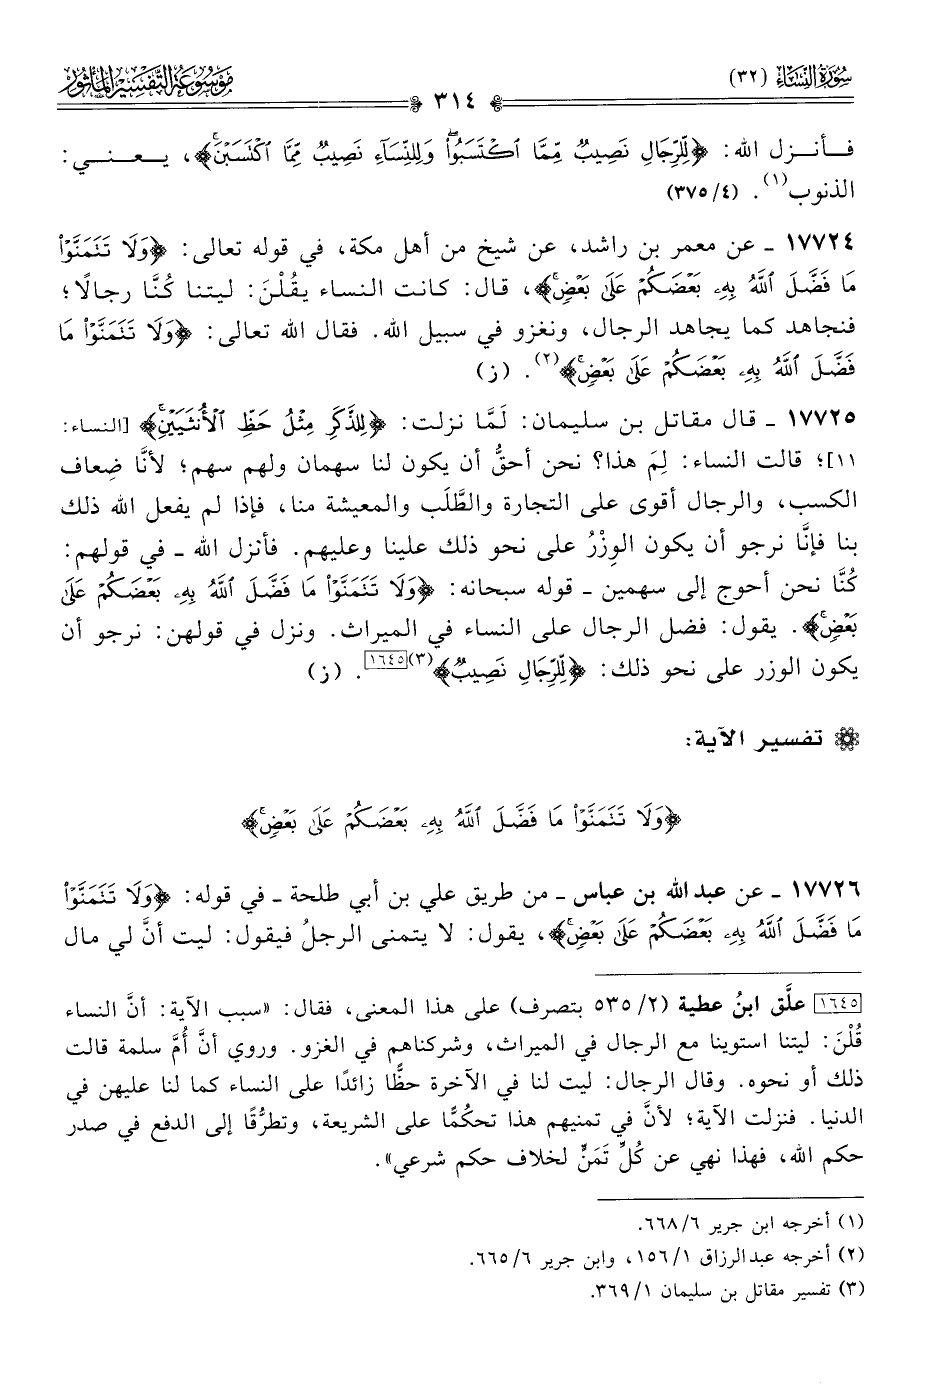 سُورَةُ النِّسَاءِ (٣٢)
٣١٤
مَوْسُوعَةُ التَّفْسِيرِ المَأْثُورِ
فـأنـزل الله: ﴿لِّلرِّجَالِ نَصِيبٌ مِّمَّا ٱكْتَسَبُوا۟ۖ وَلِلنِّسَآءِ نَصِيبٌ مِّمَّا ٱكْتَسَبْنَۚ﴾، يـعـنـي:
الذنوب(١). (٤/ ٣٧٥)
١٧٧٢٤ ـ عن معمر بن راشد، عن شيخ من أهل مكة، في قوله تعالى: ﴿وَلَا تَتَمَنَّوْا۟
مَا فَضَّلَ ٱللَّهُ بِهِۦ بَعْضَكُمْ عَلَىٰ بَعْضٍۚ﴾، قال: كانت النساء يقُلْنَ: ليتنا كُنَّا رجالًا؛
فنجاهد كما يجاهد الرجال، ونغزو في سبيل الله. فقال الله تعالى: ﴿وَلَا تَتَمَنَّوْا۟ مَا
فَضَّلَ ٱللَّهُ بِهِۦ بَعْضَكُمْ عَلَىٰ بَعْضٍۚ﴾(٢). (ز)
١٧٧٢٥ ـ قال مقاتل بن سليمان: لَمَّا نزلت: ﴿لِلذَّكَرِ مِثْلُ حَظِّ ٱلْأُنثَيَيْنِۚ﴾ [النساء:
١١]؛ قالت النساء: لِمَ هذا؟ نحن أحقُّ أن يكون لنا سهمان ولهم سهم؛ لأنَّا ضِعاف
الكسب، والرجال أقوى على التجارة والطَّلَب والمعيشة منا، فإذا لم يفعل الله ذلك
بنا فإنَّا نرجو أن يكون الوِزْرُ على نحو ذلك علينا وعليهم. فأنزل الله ـ في قولهم:
كُنَّا نحن أحوج إلى سهمين ـ قوله سبحانه: ﴿وَلَا تَتَمَنَّوْا۟ مَا فَضَّلَ ٱللَّهُ بِهِۦ بَعْضَكُمْ عَلَىٰ
بَعْضٍۚ﴾. يقول: فضل الرجال على النساء في الميراث. ونزل في قولهن: نرجو أن
يكون الوزر على نحو ذلك: ﴿لِّلرِّجَالِ نَصِيبٌ﴾(٣)[١٦٤٥]. (ز)
تفسير الآية:
﴿وَلَا تَتَمَنَّوْا۟ مَا فَضَّلَ ٱللَّهُ بِهِۦ بَعْضَكُمْ عَلَىٰ بَعْضٍۚ﴾
١٧٧٢٦ ـ عن عبد الله بن عباس ـ من طريق علي بن أبي طلحة ـ في قوله: ﴿وَلَا تَتَمَنَّوْا۟
مَا فَضَّلَ ٱللَّهُ بِهِۦ بَعْضَكُمْ عَلَىٰ بَعْضٍۚ﴾، يقول: لا يتمنى الرجلُ فيقول: ليت أنَّ لي مال
[١٦٤٥] علَّق ابنُ عطية (٢/ ٥٣٥ بتصرف) على هذا المعنى، فقال: «سبب الآية: أنَّ النساء
قُلْنَ: ليتنا استوينا مع الرجال في الميراث، وشركناهم في الغزو. وروي أنَّ أُمَّ سلمة قالت
ذلك أو نحوه. وقال الرجال: ليت لنا في الآخرة حظًّا زائدًا على النساء كما لنا عليهن في
الدنيا. فنزلت الآية؛ لأنَّ في تمنيهم هذا تحكُّمًا على الشريعة، وتطرُّقًا إلى الدفع في صدر
حكم الله، فهذا نهي عن كُلِّ تَمَنٍّ لخلاف حكم شرعي».
(١) أخرجه ابن جرير ٦/ ٦٦٨.
(٢) أخرجه عبدالرزاق ١/ ١٥٦، وابن جرير ٦/ ٦٦٥.
(٣) تفسير مقاتل بن سليمان ١/ ٣٦٩.